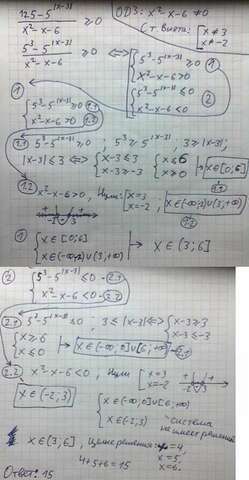 125-5^|x-3| / x²-x-6 ≥0
ОДЗ: x²-x-6 ≠0
С т. Виета: [x≠3
x≠-2
5³-5^|x-3| / x²-x-6 ≥0 ⟺ [{5³-5^|x-3| ≥0 ①
x²-x-6>0
{5³-5^|x-3| ≤0
x²-x-6<0 ②
① {5³-5^|x-3| ≥0 1.1
x²-x-6>0 1.2
1.1 5³-5^|x-3| ≥0, 5³≥5^|x-3|, 3≥|x-3|,
|x-3|≤3 ⟺ {x-3≤3
x-3≥-3 {x≤6
x≥0 → x∈[0;6]
1.1
1.2 x²-x-6>0, Нули: [x=3
x=-2, x∈(-∞;-2)∪(3;+∞)
+ - +
-2 3
1.2
① {x∈[0;6]
x∈(-∞;-2)∪(3;+∞) → x∈(3;6]
② {5³-5^|x-3| ≤0 - 2.1
x²-x-6<0 - 2.2
2.1 5³-5^|x-3| ≤0, 3≤|x-3| ⟺ [x-3≥3
x-3≤-3
[x≥6
x≤0 → x∈(-∞;0]∪[6;+∞) - 2.1
2.2 x²-x-6<0, Нули [x=3
x=-2
+ - +
-2 3
x∈(-2;3)
{x∈(-∞;0]∪[6;+∞)
x∈(-2;3)
система
не имеет решений
x∈(3;6], Целые решения: x=4
x=5
x=6.
4+5+6=15
Ответ: 15